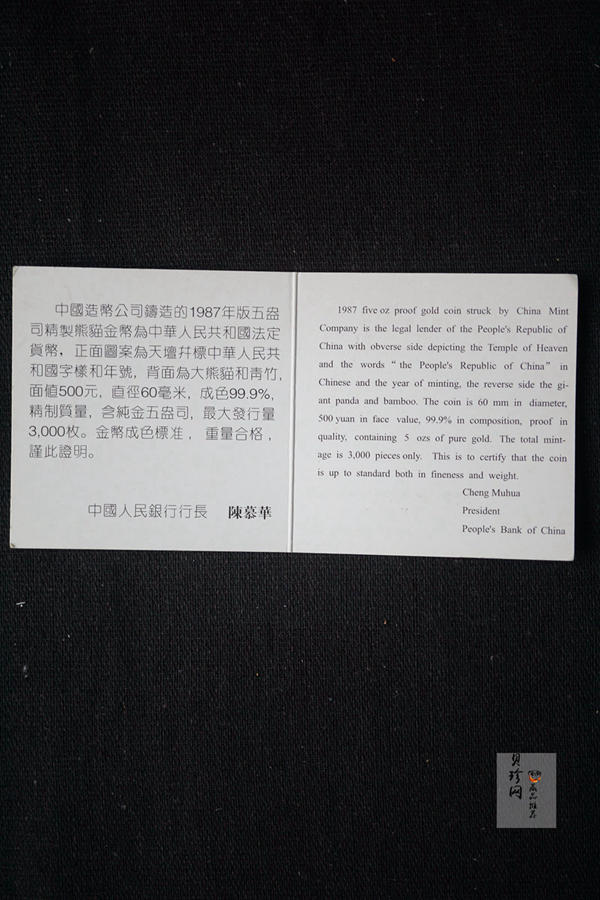 中國造幣公司鑄造的1987年版五盎
司精製熊貓金幣為中華人民共和國法定
貨幣，正面圖案為天壇幷標中華人民共
和國字樣和年號，背面為大熊貓和靑竹，
面值500元，直徑60毫米，成色99.9%，
精制質量，含純金五盎司，最大發行量
3,000枚。金幣成色標准，重量合格，
謹此證明。
中國人民銀行行長 陳慕華
1987 five oz proof gold coin struck by China Mint
Company is the legal lender of the People's Republic of
China with obverse side depicting the Temple of Heaven
and the words “ the People's Republic of China” in
Chinese and the year of minting, the reverse side the gi-
ant panda and bamboo. The coin is 60 mm in diameter,
500 yuan in face value, 99.9% in composition, proof in
quality, containing 5 ozs of pure gold. The total mint-
age is 3,000 pieces only. This is to certify that the coin
is up to standard both in fineness and weight.
Cheng Muhua
President
People's Bank of China
贝珍网
藏品推荐